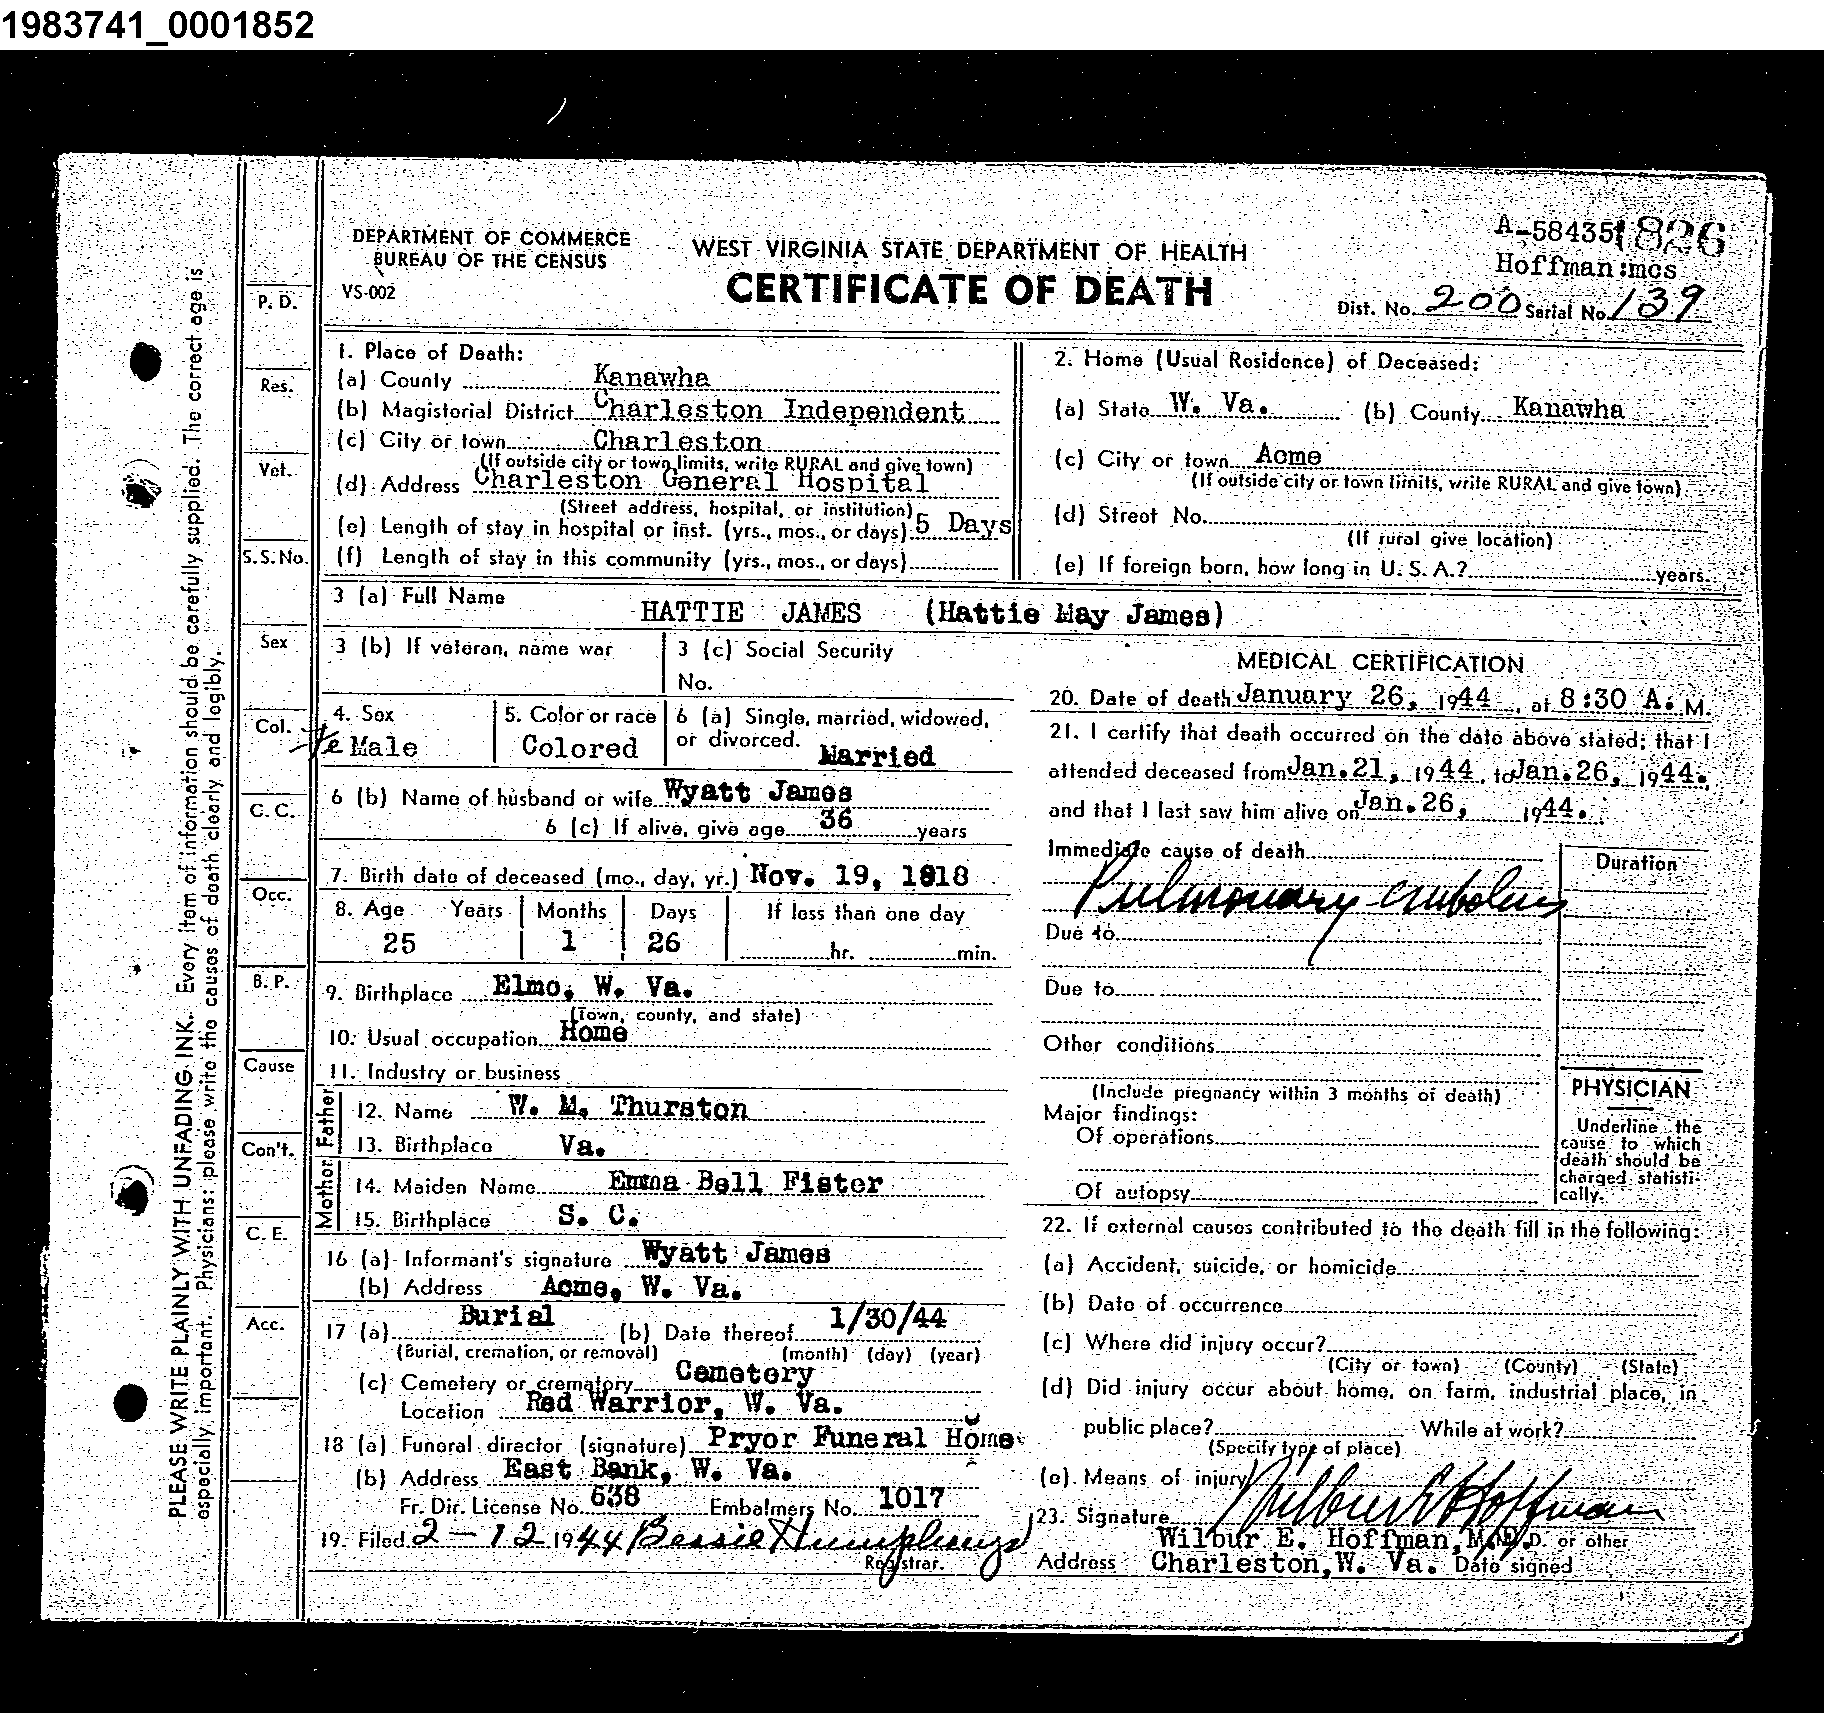 1983741_0001852
DEPARTMENT OF COMMERCE
BUREAU OF THE CENSUS
VS-002
WEST VIRGINIA STATE DEPARTMENT OF HEALTH
CERTIFICATE OF DEATH
A-58435
1826
Hoffman:mcs
Dist. No. 200 Serial No. 139
PLEASE WRITE PLAINLY WITH UNFADING INK. Every item of information should be carefully supplied. The correct age is
especially important. Physicians: please write the causes of death clearly and legibly.
P. D.
Res.
Vet.
S. S. No.
Sex
Col.
C. C.
Occ.
B. P.
Cause
Con't.
C. E.
Acc.
1. Place of Death:
(a) County Kanawha
(b) Magisterial District Charleston Independent
(c) City or town Charleston
(If outside city or town limits, write RURAL and give town)
(d) Address Charleston General Hospital
(Street address, hospital, or institution)
(e) Length of stay in hospital or inst. (yrs., mos., or days) 5 Days
(f) Length of stay in this community (yrs., mos., or days)
2. Home (Usual Residence) of Deceased:
(a) State W. Va. (b) County Kanawha
(c) City or town Acme
(If outside city or town limits, write RURAL and give town)
(d) Street No.
(If rural give location)
(e) If foreign born, how long in U. S. A.? years.
3 (a) Full Name HATTIE JAMES (Hattie May James)
3 (b) If veteran, name war
3 (c) Social Security
No.
4. Sex
fe Male
5. Color or race
Colored
6 (a) Single, married, widowed,
or divorced. Married
6 (b) Name of husband or wife Wyatt James
6 (c) If alive, give age 36 years
7. Birth date of deceased (mo., day, yr.) Nov. 19, 1818
8. Age Years Months Days If less than one day
25 1 26 hr. min.
9. Birthplace Elmo, W. Va.
(Town, county, and state)
10. Usual occupation Home
11. Industry or business
Father
12. Name W. M. Thurston
13. Birthplace Va.
Mother
14. Maiden Name Emma Bell Fister
15. Birthplace S. C.
16 (a) Informant's signature Wyatt James
(b) Address Acme, W. Va.
17 (a) Burial (b) Date thereof 1/30/44
(Burial, cremation, or removal) (month) (day) (year)
(c) Cemetery or crematory Cemetery
Location Red Warrior, W. Va.
18 (a) Funeral director (signature) Pryor Funeral Home
(b) Address East Bank, W. Va.
Fr. Dir. License No. 638 Embalmers No. 1017
19. Filed 2-12 1944 Bessie Humphreys
Registrar.
MEDICAL CERTIFICATION
20. Date of death January 26, 1944, at 8:30 A. M.
21. I certify that death occurred on the date above stated; that I
attended deceased from Jan. 21, 1944, to Jan. 26, 1944.
and that I last saw him alive on Jan. 26, 1944.
Immediate cause of death
Duration
Pulmonary embolus
Due to
Due to
Other conditions
(Include pregnancy within 3 months of death)
Major findings:
Of operations
Of autopsy
PHYSICIAN
Underline the
cause to which
death should be
charged statisti-
cally.
22. If external causes contributed to the death fill in the following:
(a) Accident, suicide, or homicide
(b) Date of occurrence
(c) Where did injury occur?
(City or town) (County) (State)
(d) Did injury occur about home, on farm, industrial place, in
public place? While at work?
(Specify type of place)
(e) Means of injury
23. Signature Wilbur E Hoffman
Wilbur E. Hoffman, M.D. M.D. or other
Address Charleston, W. Va. Date signed